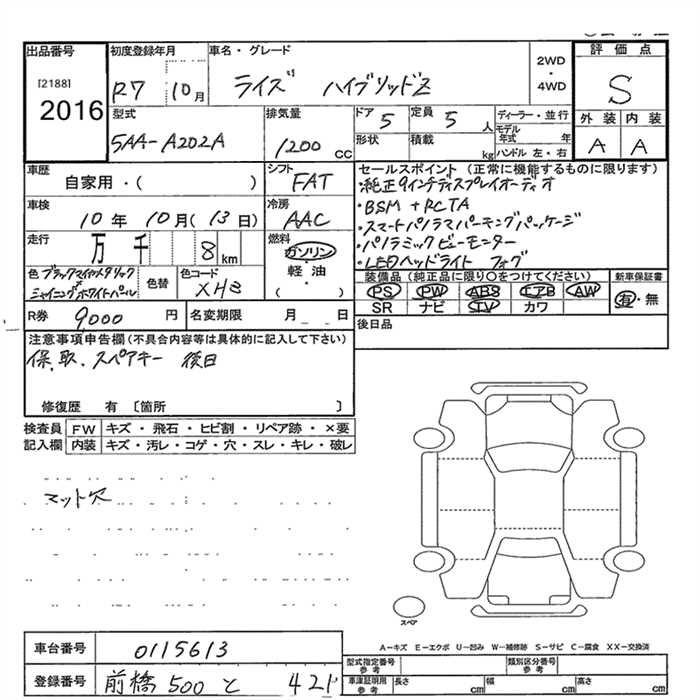 出品番号
[2188]
2016
初度登録年月
R7 10月
車名・グレード
ライズ ハイブリッドZ
2WD
・
4WD
評価点
S
外装 内装
A A
型式
5AA-A202A
排気量
1200 cc
ドア 5
形状
定員 5 人
積載 kg
ディーラー・並行
モデル年式 年
ハンドル 左・右
車歴
自家用・( )
シフト
FAT
車検
10年 10月(13日)
冷房
AAC
走行
万 千 8 km
燃料
ガソリン
・
軽油
・
( )
色 ブラックマイカメタリック
シャイニングホワイトパール
色替
色コード
XH3
R券 9,000 円
名変期限 月 日
セールスポイント (正常に機能するものに限ります)
・純正9インチディスプレイオーディオ
・BSM + RCTA
・スマートパノラマパーキングパッケージ
・パノラミックビューモニター
・LEDヘッドライト フォグ
装備品 (純正品に限り○をつけてください)
PS PW ABS エアB AW
SR ナビ TV カワ
新車保証書
有・無
後日品
注意事項申告欄(不具合内容等は具体的に記入して下さい)
保、取、スペアキー 後日
修復歴 有 〔箇所 〕
検査員記入欄
FW キズ・飛石・ヒビ割・リペア跡・×要
内装 キズ・汚レ・コゲ・穴・スレ・キレ・破レ
マット穴
スペア
A−キズ E−エクボ U−凹み W−補修跡 S−サビ C−腐食 XX−交換済
車台番号 0115613
登録番号 前橋 500 と 421
型式指定番号 参考
類別区分番号 参考
車庫証明用 参考
長さ cm 幅 cm 高さ cm